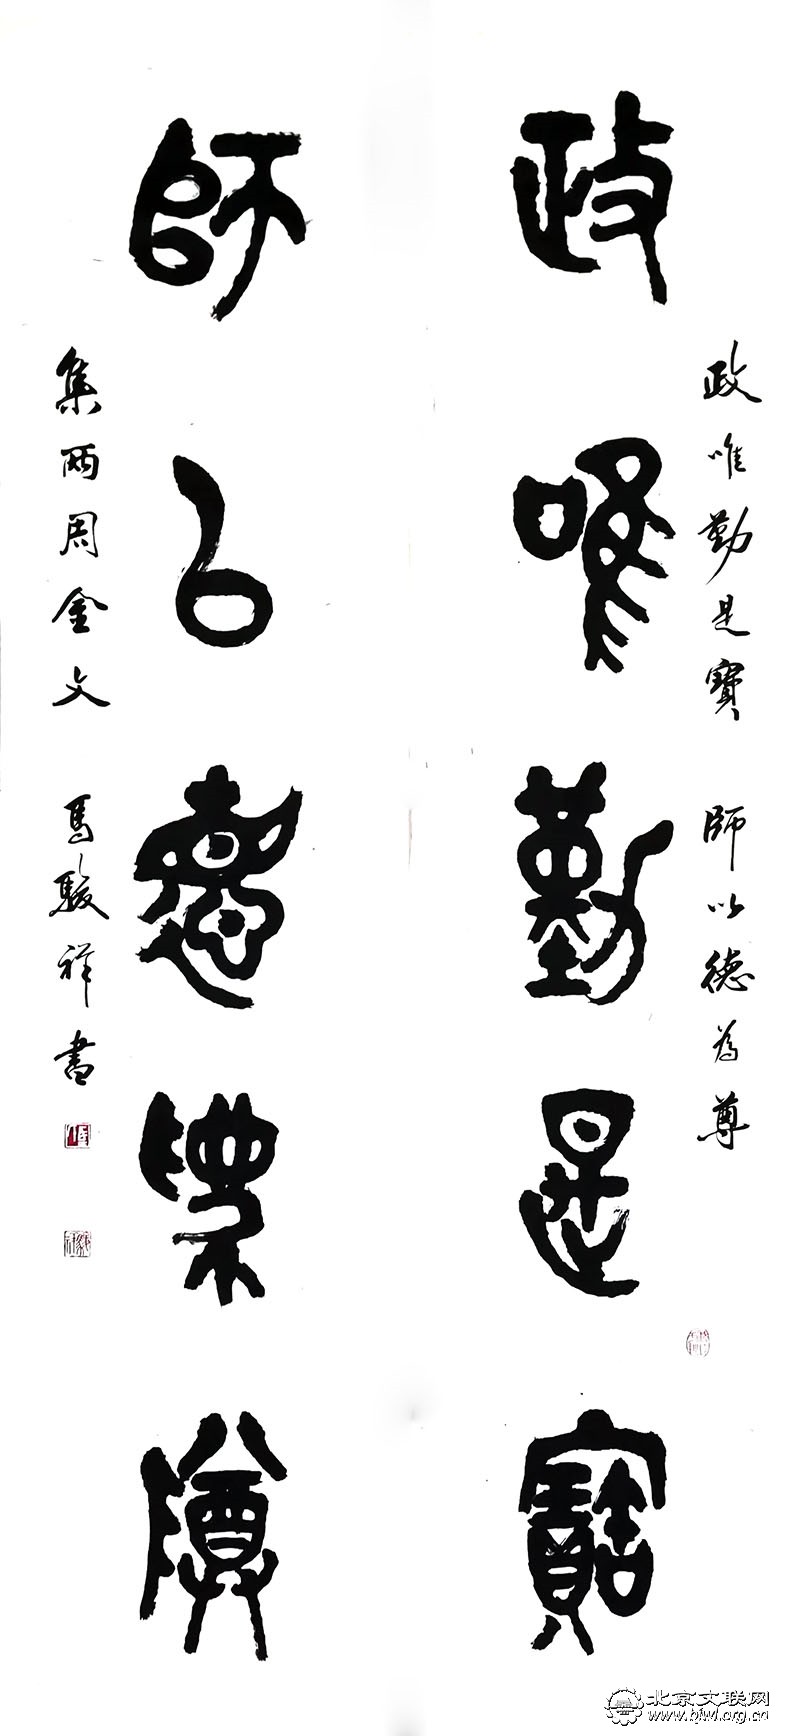 政唯勤是寶
師以德為尊
政唯勤是寶 師以德為尊
集兩周金文 馬駿祥書
北京文联网
www.bjwl.org.cn